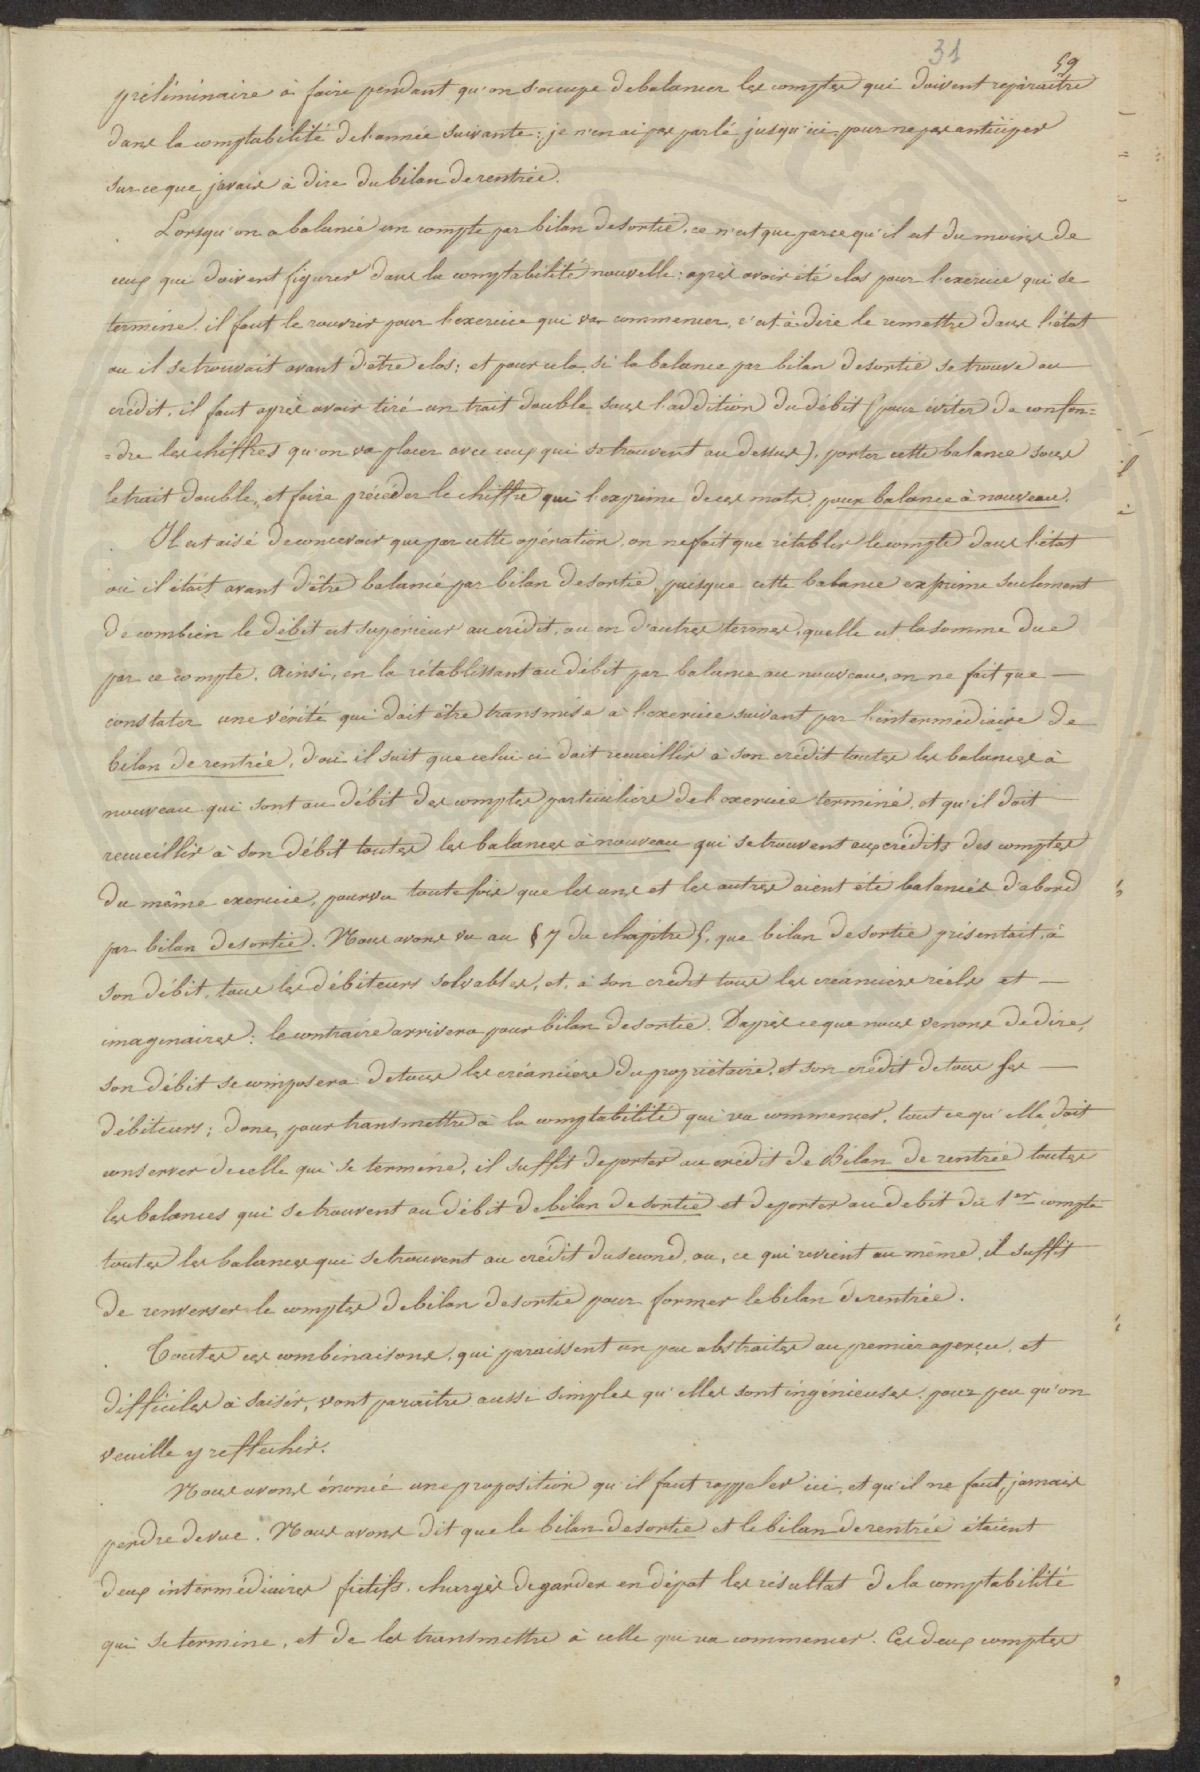 31
59
préliminaire à faire pendant qu'on s'occupe de balancer les comptes qui doivent reparaître
dans la comptabilité de l'année suivante; je n'en ai pas parlé jusqu'ici pour ne pas anticiper
sur ce que j'avais à dire du bilan de rentrée.
Lorsqu'on a balancé un compte par bilan de sortie, ce n'est que parce qu'il est du moins de
ceux qui doivent figurer dans la comptabilité nouvelle: après avoir été clos pour l'exercice qui se
termine, il faut le rouvrir pour l'exercice qui va commencer, c'est à dire le remettre dans l'état
ou il se trouvait avant d'être clos; et pour cela, si la balance par bilan de sortie se trouve au
crédit, il faut après avoir tiré un trait double sous l'addition du débit (pour éviter de confon=
=dre les chiffres qu'on va placer avec ceux qui se trouvent au dessus), porter cette balance sous
le trait double, et faire précéder le chiffre qui l'exprime de ces mots, pour balance à nouveau.
Il est aisé de concevoir que par cette opération, on ne fait que rétablir le compte dans l'état
où il était avant d'être balancé par bilan de sortie, puisque cette balance exprime seulement
de combien le débit est supérieur au crédit, ou en d'autres termes, quelle est la somme due
par ce compte. Ainsi, en la rétablissant au débit par balance au nouveau, on ne fait que —
constater une vérité qui doit être transmise à l'exercice suivant par l'intermédiaire de
bilan de rentrée, d'où il suit que celui ci doit recueillir à son crédit toutes les balances à
nouveau qui sont au débit des comptes particuliers de l'exercice terminé, et qu'il doit
recueillir à son débit toutes les balances à nouveau qui se trouvent aux crédits des comptes
du même exercice, pourvu toute fois que les uns et les autres aient été balancés d'abord
par bilan de sortie. Nous avons vu au § 7 du chapitre 5, que bilan de sortie présentait, à
son débit, tous les débiteurs solvables, et, à son crédit tous les créanciers réels et —
imaginaires: le contraire arrivera pour bilan de sortie. D'après ce que nous venons de dire,
son débit se composera de tous les créanciers du propriétaire, et son crédit de tous ses —
débiteurs; donc, pour transmettre à la comptabilité qui va commencer, tout ce qu'elle doit
conserver de celle qui se termine, il suffit de porter au crédit de Bilan de rentrée toutes
les balances qui se trouvent au débit de bilan de sortie et de porter au debit du 1er compte
toutes les balances qui se trouvent au crédit du second, ou, ce qui revient au même, il suffit
de renverser le comptes de bilan de sortie pour former le bilan de rentrée.
Toutes ces combinaisons, qui paraissent un peu abstraites au premier aperçu, et
difficiles à saisir, vont paraître aussi simples qu'elles sont ingénieuses, pour peu qu'on
veuille y reflechir.
Nous avons énoncé une proposition qu'il faut rappeler ici, et qu'il ne faut jamais
perdre de vue. Nous avons dit que le bilan de sortie et le bilan de rentrée étaient
deux intermédiaires fictifs, chargés de garder en dépôt les résultat de la comptabilité
qui se termine, et de les transmettre à celle qui va commencer. Ces deux comptes